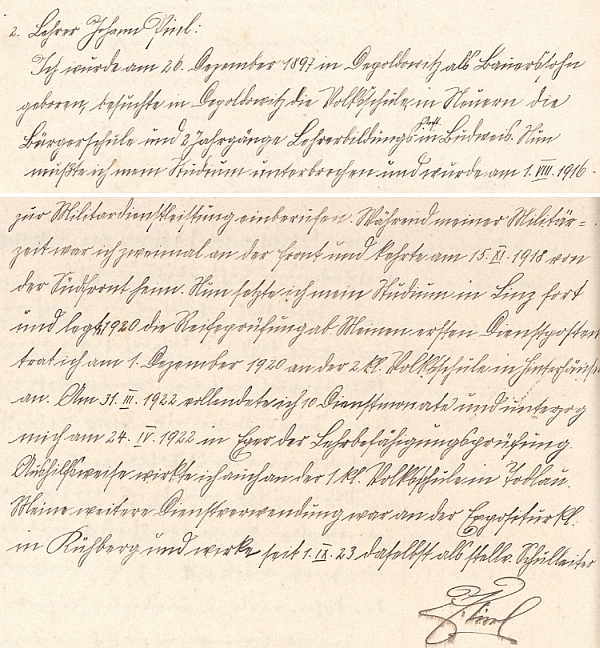 2. Lehrer Johann Pirel:
Ich wurde am 26. Dezember 1897 in Depoldowitz als Bauerssohn
geboren, besuchte in Depoldowitz die Volksschule, in Neuern die
Bürgerschule und 2 Jahrgänge Lehrerbildungsanst. in Budweis. Nun
mußte ich mein Studium unterbrechen und wurde am 1. VIII. 1916.
zur Militärdienstleistung einberufen. Während meiner Militär=
zeit war ich zweimal an der Front und kehrte am 15. XI. 1918 von
der Südfront heim. Nun setzte ich mein Studium in Linz fort
und legte 1920 die Reifeprüfung ab. Meinen ersten Dienstposten
trat ich am 1. Dezember 1920 an der 2 kl. Volksschule in Hinterhäuser
an. Am 31. III. 1922 vollendete ich 10 Dienstmonate und unterzog
mich am 24. IV. 1922 in Eger der Lehrbefähigungsprüfung.
Aushilfsweise wirkte ich auch an der 1 kl. Volksschule in
Meine weitere Dienstverwendung war an der Expositurkl.
in Kühberg und wirke seit 1. IX. 23 daselbst als stellv. Schulleiter